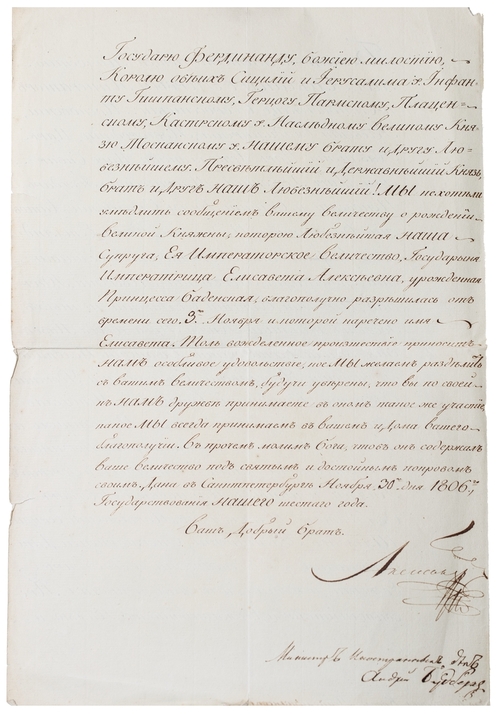 Государю Фердинанду, Божіею милостію,
Королю обѣихъ Сицилій и Іерусалима & Инфан-
ту Гишпанскому, Герцогу Пармскому, Плацен-
скому, Кастрскому & Наслѣдному Великому Кня-
зю Тосканскому & Нашему брату и Другу Лю-
безнѣйшему. Пресвѣтлѣйшій и Державнѣйшій Князь,
братъ и Другъ Нашъ Любезнѣйшій! Мы не хотѣли
умѣдлить сообщеніемъ вашему величеству о рожденіи
великой Княжны, которою Любезнѣйшая Наша
Супруга, Ея Императорское Величество, Государыня
Императрица Елисавета Алексѣевна, урожденная
Принцесса Баденская, благополучно разрѣшилась отъ
времени сего 3го Ноября и которой наречено имя
Елисавета. Толь вожделенное произшествіе приноситъ
намъ особливое удовольствіе, кое Мы желаемъ раздѣлить
съ вашимъ величествомъ, будучи увѣрены, что вы по своей
къ намъ дружбѣ принимаете въ ономъ такое же участіе,
какое Мы всегда принимаемъ въ вашемъ и Дома вашего
благополучіи. Въ прочемъ молимъ Бога, чтобъ онъ содержалъ
ваше величество подъ святымъ и достойнымъ покровомъ
своимъ. Дана въ Санктпетербургѣ Ноября 30го дня 1806го,
Государствованія Нашего шестаго года.
Вашъ Добрый братъ.
Александръ
Министръ Иностранныхъ дѣлъ
Андрей Будбергъ